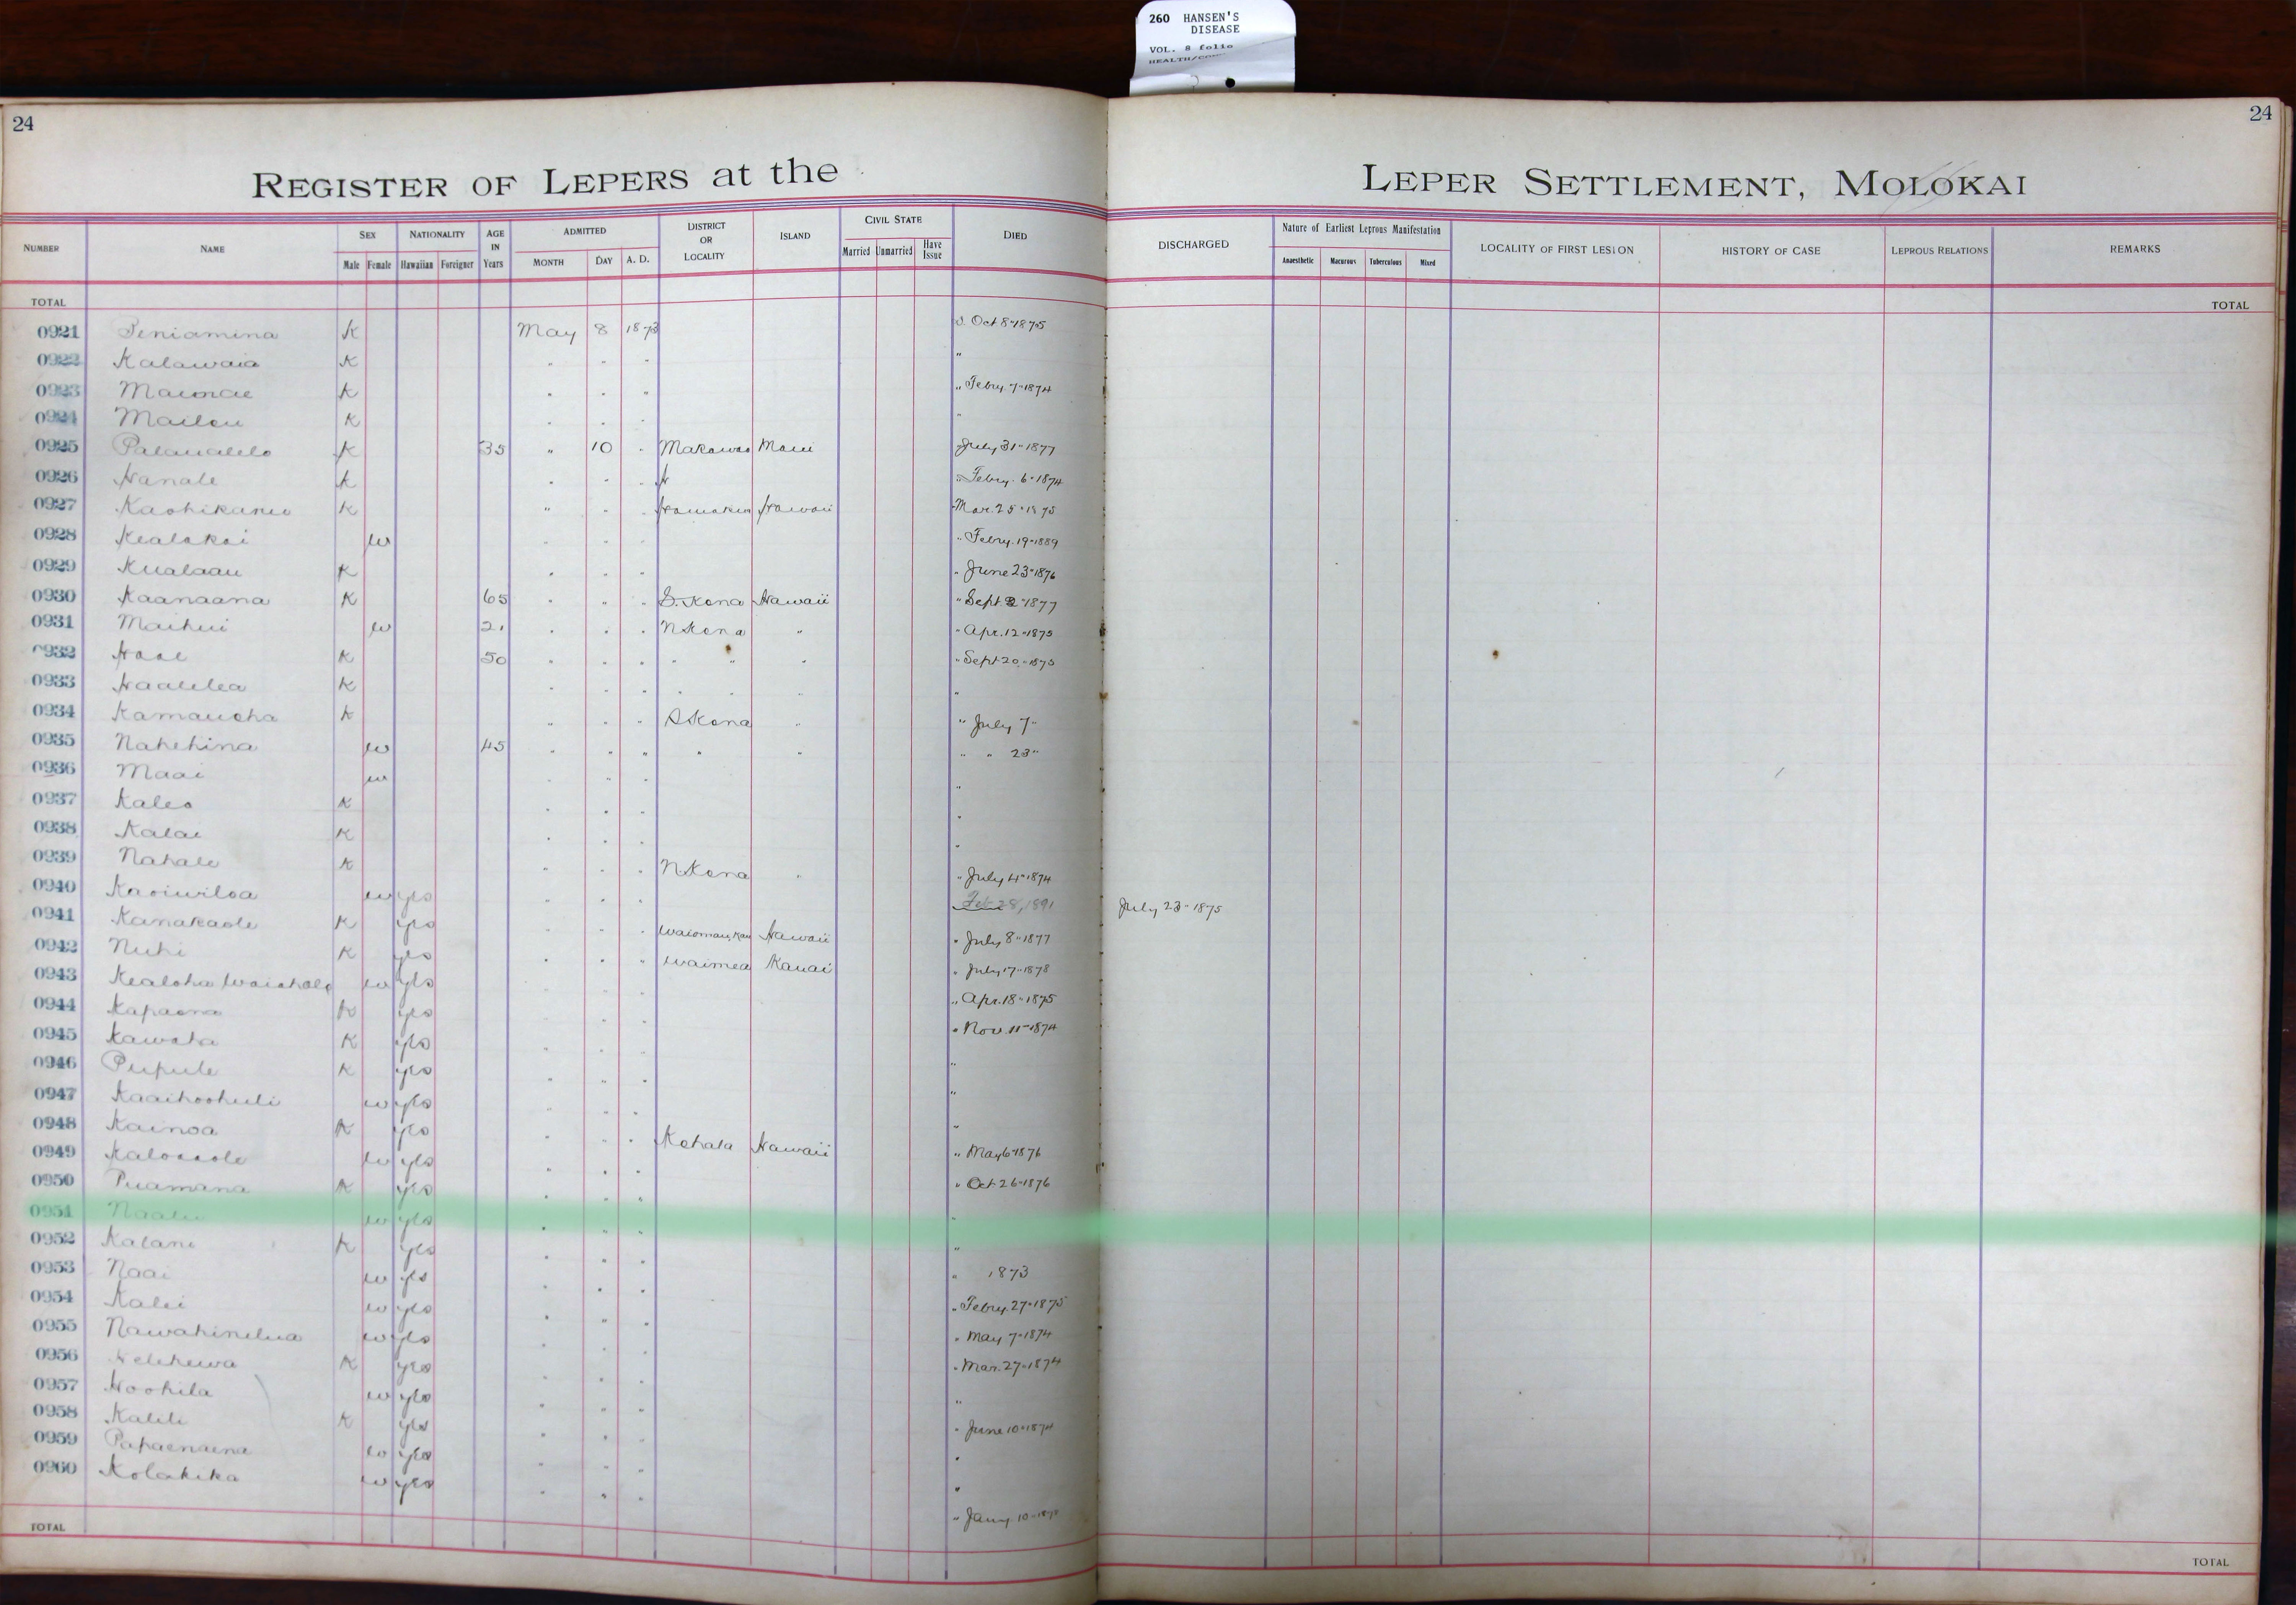 260 HANSEN'S
DISEASE
VOL. 8 folio
24 24
REGISTER OF LEPERS at the LEPER SETTLEMENT, MOLOKAI
NUMBER NAME SEX NATIONALITY AGE IN Years ADMITTED DISTRICT OR LOCALITY ISLAND CIVIL STATE DIED DISCHARGED Nature of Earliest Leprous Manifestation LOCALITY OF FIRST LESION HISTORY OF CASE LEPROUS RELATIONS REMARKS
Male Female Hawaiian Foreigner MONTH DAY A. D. Married Unmarried Have Issue Anaesthetic Macurous Tuberculous Mixed
TOTAL TOTAL
0921 Peniamina K May 8 1873 Oct 8" 1875
0922 Kalawaia K " " " "
0923 K " " " " Febry. 7" 1874
0924 K " " " "
0925 K 35 " 10 " Makawao Maui July 31" 1877
0926 Hanale K " " " Febry. 6" 1874
0927 K " " " Hamakua Hawaii Mar. 25" 1875
0928 Kealakai w " " " " Febry. 19" 1889
0929 Kualaau K " " " " June 23" 1876
0930 Kaanaana K 65 " " " S. Kona Hawaii " Sept 2" 1877
0931 Maihui w 21 " " " N Kona " " Apr. 12" 1875
0932 K 50 " " " " " " " Sept 20" 1875
0933 Haalilea K " " " " " " "
0934 Kamauoha K " " " S Kona " " July 7"
0935 Nahehina w 45 " " " " " " " 23"
0936 Maai w " " " "
0937 Kaleo K " " " "
0938 Kalai K " " " "
0939 Nahale K " " " N Kona " " July 4" 1874
0940 Kaoiwiloa w yes " " " Feb 28, 1891 July 23" 1875
0941 Kanakaole K yes " " " Hawaii " July 8" 1877
0942 Nuhi K yes " " " Waimea Kauai " July 17" 1878
0943 Kealoha w yes " " " " Apr. 18" 1875
0944 Kapaona K yes " " " " Nov. 11" 1874
0945 Kawaha K yes " " " "
0946 Pupule K yes " " " "
0947 Kaaihoohuli w yes " " " "
0948 Kainoa K yes " " " Kohala Hawaii " May 6" 1876
0949 w yes " " " " Oct 26" 1876
0950 Puamana K yes " " " "
0951 w yes " " " "
0952 Kalani K yes " " " " 1873
0953 Naai w yes " " " " Febry. 27" 1875
0954 Kalei w yes " " " " May 7" 1874
0955 Nawahinelua w yes " " " " Mar. 27" 1874
0956 Kelehewa K yes " " " "
0957 Hoohila w yes " " " " June 10" 1874
0958 Kalili K yes " " " "
0959 Papaenaena w yes " " " "
0960 Kolakika w yes " " " " Jany. 10"
TOTAL TOTAL